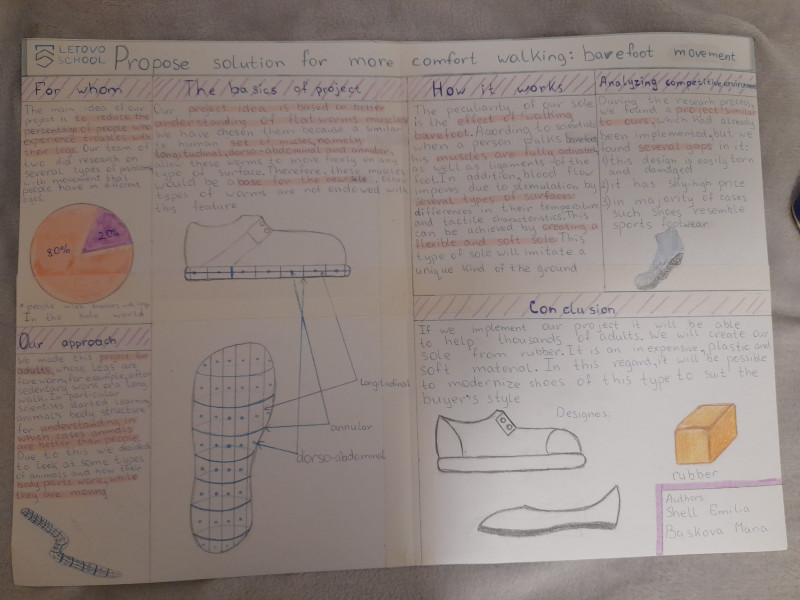 LETOVO
SCHOOL
Propose solution for more comfort walking: barefoot movement
For whom
The main idea of our
project is to reduce the
percentage of people who
experience troubles with
their legs. Our team of
two did research on
several types of
with movement that
people have in different
ages.
80%
20%
*people with
In the hole world
Our approach
We made this project for
adults, whose legs are
for example, after
sedentary work or a long
walk. In particular
scientists started learning
animals body structure
for understanding in
which cases animals
are better than people.
Due to this we decided
to look at some types
of animals and how their
body parts work, while
they are moving
The basics of project
Our project idea is based on better
understanding of flatworms muscles
We have chosen them because a similar
to human set of muscles, namely
longitudinal, dorso-abdominal and annular,
allow these worms to move freely on any
type of surface. Therefore, these muscles
would be a base for the new sole. Other
types of worms are not endowed with
this feature
longitudinal
annular
dorso-abdominal
How it works
The peculiarity of our sole
is the effect of walking
barefoot. According to scientists,
when a person walks barefoot
his muscles are fully activated
as well as ligaments of the
feet. In addition, blood flow
improves due to stimulation by
several types of surfaces:
differences in their temperature
and tactile characteristics. This
can be achieved by creating a
flexible and soft sole. This
type of sole will imitate a
unique kind of the ground
Analyzing competitive environment
During the research process,
we found a project similar
to ours, which had already
been implemented, but we
found several gaps in it:
1) this design is easily torn
and damaged
2) it has sky-high price
3) in majority of cases
such shoes resemble
sports footwear
Conclusion
If we implement our project it will be able
to help thousands of adults. We will create our
sole from rubber. It is an inexpensive, plastic and
soft material. In this regard, it will be possible
to modernize shoes of this type to suit the
buyer's style
Designes:
rubber
Authors
Shell Emilia
Baskova Mana